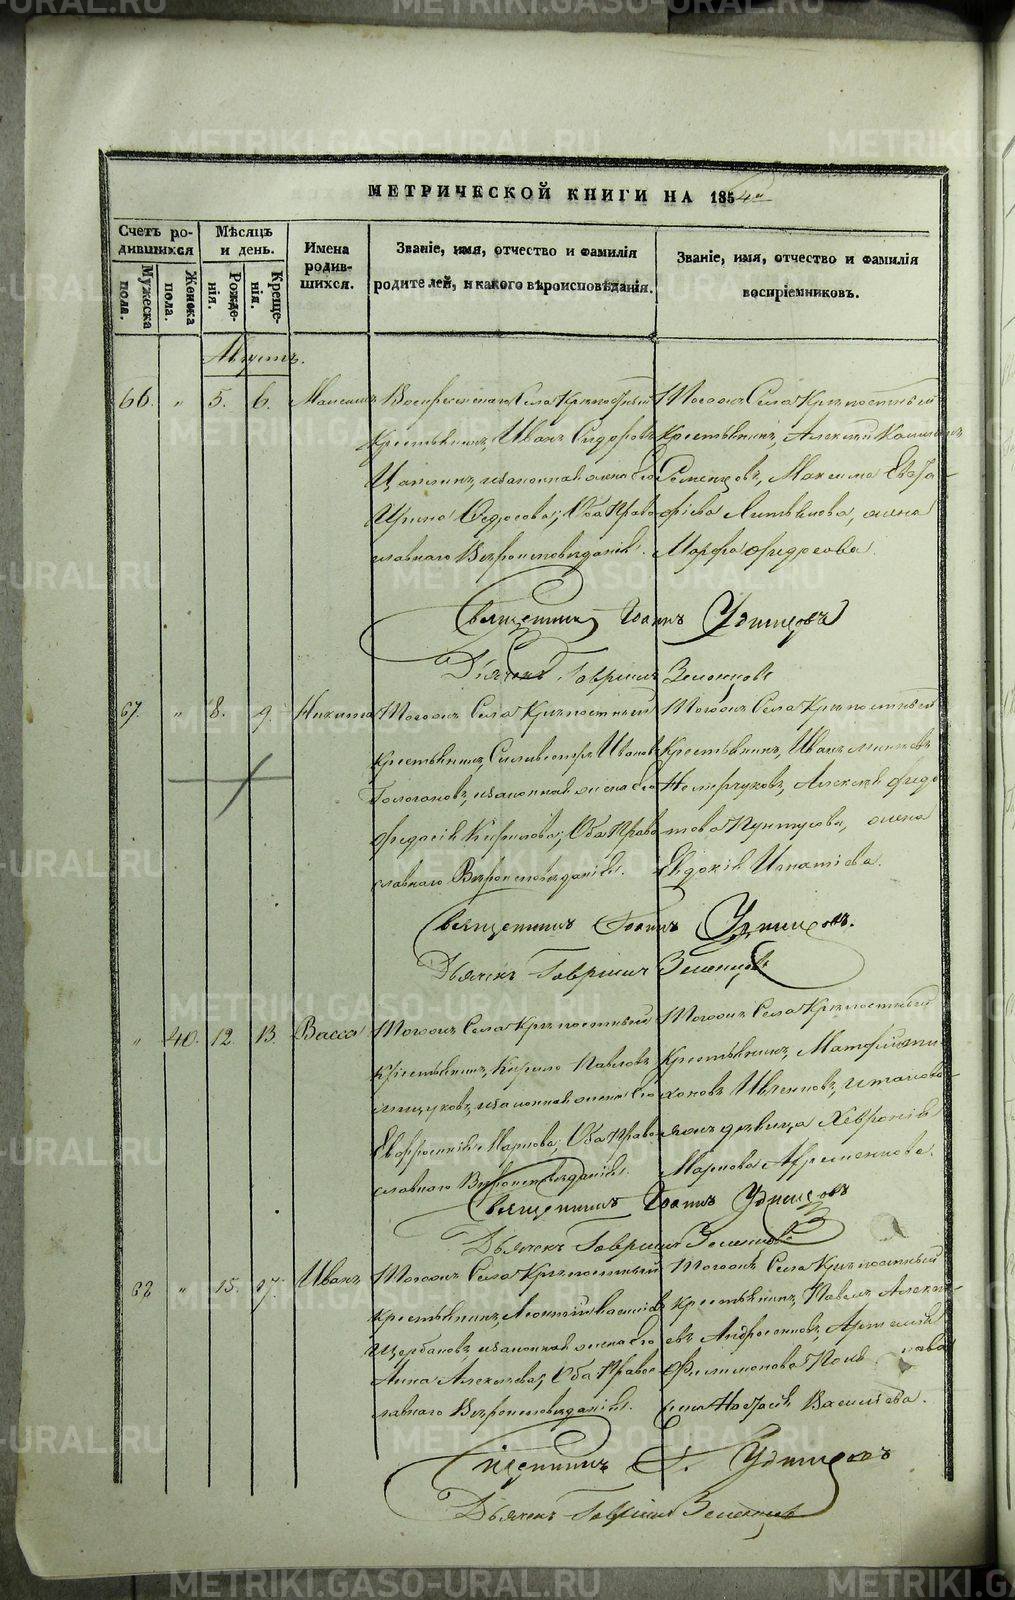 МЕТРИЧЕСКОЙ КНИГИ НА 1854й
Счетъ родившихся
Мужеска пола.
Женска пола.
Мѣсяцъ и день.
Рожденія.
Крещенія.
Имена родившихся.
Званіе, имя, отчество и фамилія родителей, и какого вѣроисповѣданія.
Званіе, имя, отчество и фамилія воспріемниковъ.
Августъ.
66. " 5. 6. Максимъ
Воскресенскаго Села Крѣпостный
Крестьянинъ, Иванъ Сидоровъ
законная жена его
Ирина Федосова; Оба Право
славнаго Вѣроисповѣданія.
Тогожъ Села Крѣпостный
Крестьянинъ, Алексѣй
Семенцовъ, Максима Евфа
фіева Литвинова, жена
Марфа Федосова.
Священникъ Іоаннъ Удинцовъ
Дьячекъ Гавріилъ Зеленцовъ
67. " 8. 9. Никита
Тогожъ Села Крѣпостный
Крестьянинъ, Силивестръ Ивановъ
Гологановъ, законная жена его
Федосія Кирилова; Оба Право
славнаго Вѣроисповѣданія.
Тогожъ Села Крѣпостный
Крестьянинъ, Иванъ
Нестерчуковъ, Алексѣя Федо
това Пунтусова, жена
Евдокія Игнатіева.
Священникъ Іоаннъ Удинцовъ.
Дьячекъ Гавріилъ Зеленцовъ
" 40. 12. 13. Васса
Тогожъ Села Крѣпостный
Крестьянинъ, Кирило Павловъ
законная жена его
Евфросинія Маркова; Оба Право
славнаго Вѣроисповѣданія.
Тогожъ Села Крѣпостный
Крестьянинъ, Матфій Ти
хоновъ Ивлековъ,
дѣвица Хевронія
Маркова Ефременкова.
Священникъ Іоаннъ Удинцовъ
Дьячекъ Гавріилъ Зеленцовъ
68 " 15. 17. Иванъ
Тогожъ Села Крѣпостный
Крестьянинъ, Леонтій Василіевъ
Щербаковъ, законная жена его
Анна Алексѣева; Оба Право
славнаго Вѣроисповѣданія.
Тогожъ Села Крѣпостный
Крестьянинъ, Павелъ Алексѣ
евъ Андросенковъ, Артемія
Филимонова
жена Настасія Васильева.
Священникъ І. Удинцовъ
Дьячекъ Гавріилъ Зеленцовъ
METRIKI.GASO-URAL.RU